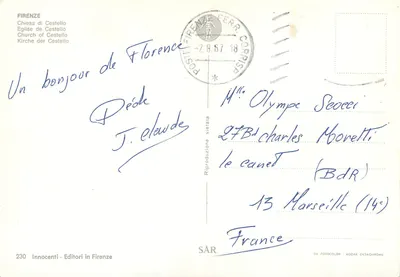 FIRENZE
Chiesa di Cestello
Eglise de Cestello
Church of Cestello
Kirche der Cestello
Un bonjour de Florence
Dédé
J. Claude
POSTE FIRENZE FERR. CORRISP.
-7.8.67.18
Mlle Olympe Scocci
27 Bd charles Moretti
le canet
(BdR)
13 Marseille (14e)
France
Riproduzione vietata
230 Innocenti - Editori in Firenze
SAR